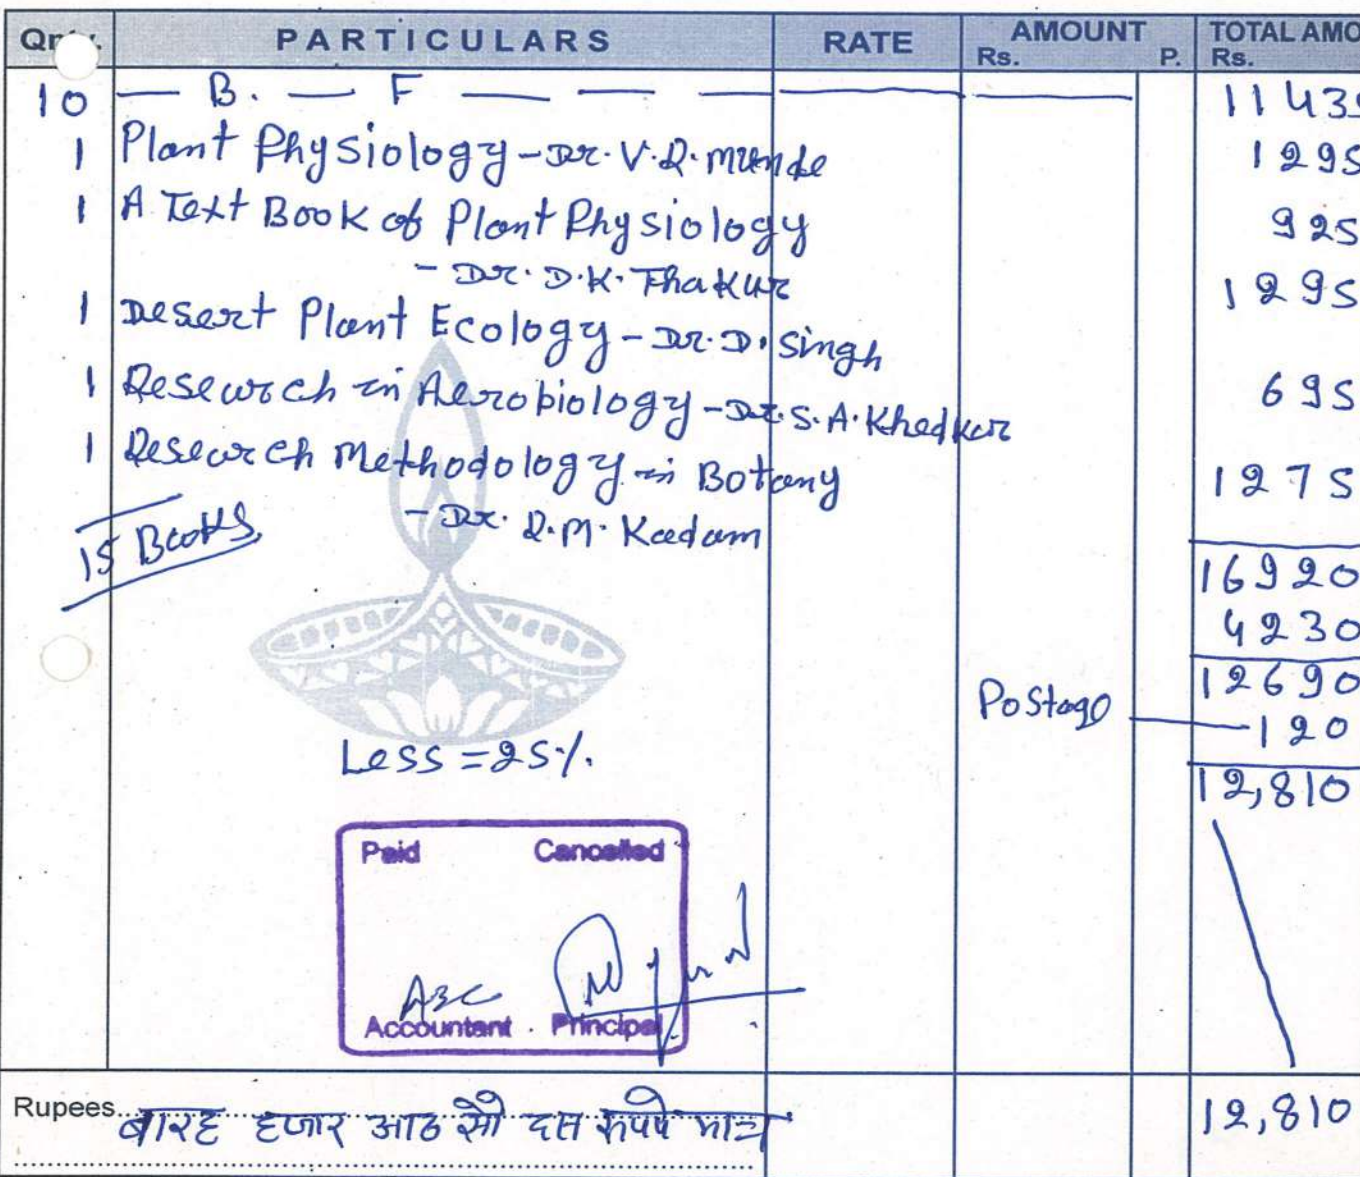 Qnty. PARTICULARS RATE AMOUNT Rs. P. TOTAL AMO Rs.
10 — B. — F — — — 11435
1 Plant Physiology - Dr. V.R. Munde 1295
1 A Text Book of Plant Physiology 925
- Dr. D.K. Thakur
1 Desert Plant Ecology - Dr. D. Singh 1295
1 Research in Aerobiology - Dr. S.A. Khedkar 695
1 Research Methodology in Botany 1275
- Dr. R.M. Kadam
15 Books
16920
4230
12690
Postage — 120
Less = 25%.
12,810
Paid Cancelled
ABC
Accountant Principal
Rupees बारह हजार आठ सौ दस रूपये मात्र 12,810